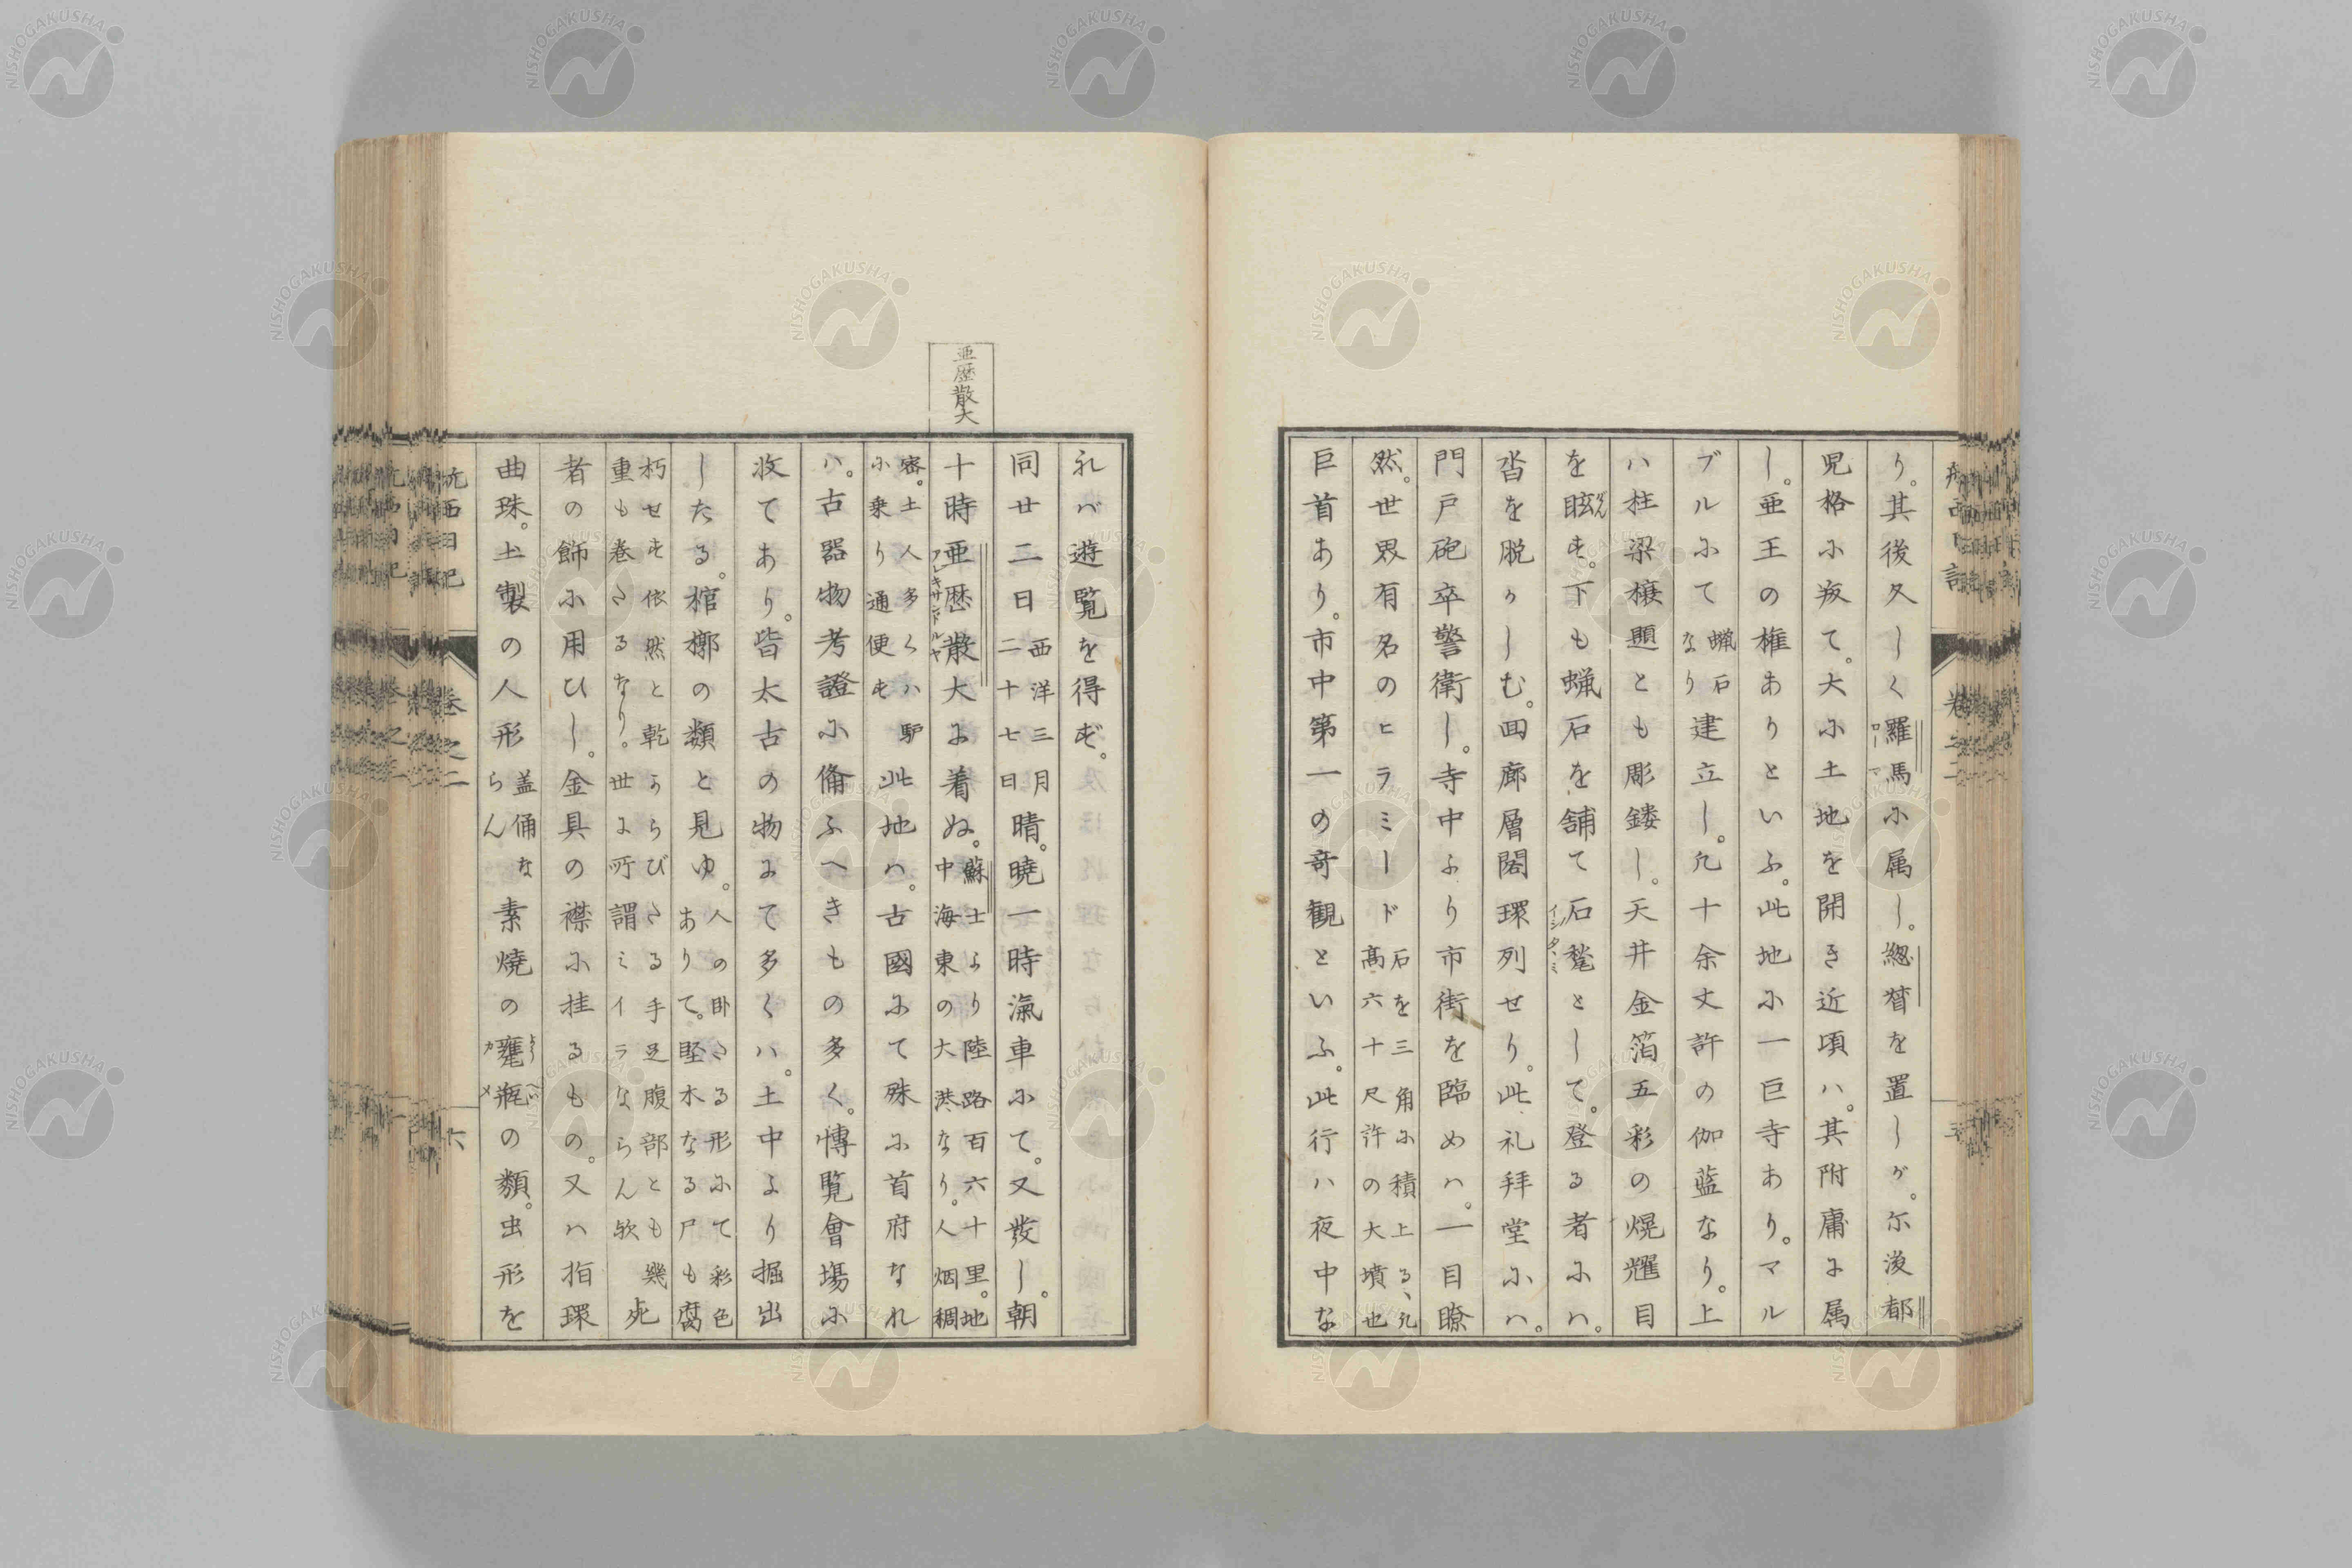 り。其後久しく羅馬に属し。總督を置しが。尓後都
児格に叛て。大に土地を開き近頃ハ。其附庸に属
し。亜王の権ありといふ。此地に一巨寺あり。マル
ブルにて蝋石なり建立し。凡十余丈許の伽藍なり。上
ハ柱梁榱題とも彫鏤し。天井金箔五彩の熀耀目
を眩す。下も蝋石を舗て石甃として。登る者にハ。
沓を脱かしむ。回廊層閣環列せり。此礼拝堂にハ。
門戸砲卒警衛し。寺中より市街を臨めハ。一目瞭
然。世界有名のヒラミード石を三角に積上る、凡高六十尺許の大墳也
巨首あり。市中第一の奇観といふ。此行ハ夜中な
れバ遊覧を得ず。
同廿二日西洋三月二十七日晴。曉一時滊車にて。又發し。朝
十時亜歴散大に着ぬ。蘇士より陸路百六十里。地中海東の大港なり。人烟稠
密。土人多くハ驢に乗り通便す此地ハ。古國にて殊に首府なれ
ハ。古器物考證に備ふへきもの多く。博覧會場に
收てあり。皆太古の物にて多くハ。土中より掘出
したる。棺槨の類と見ゆ。人の卧たる形にて彩色ありて。堅木なる尸も腐
朽せす依然と乾からびたる手足腹部とも幾重も巻たるなり。世に所謂ミイラならん歟死
者の飾に用ひし。金具の襟に挂るもの。又ハ指環
曲珠。土製の人形盖俑ならん素焼の甕瓶の類。虫形を
亜歴散大
ローマ
げん
イシダヽミ
アレキサンドルヤ
カメ
航西日記
巻之二
六